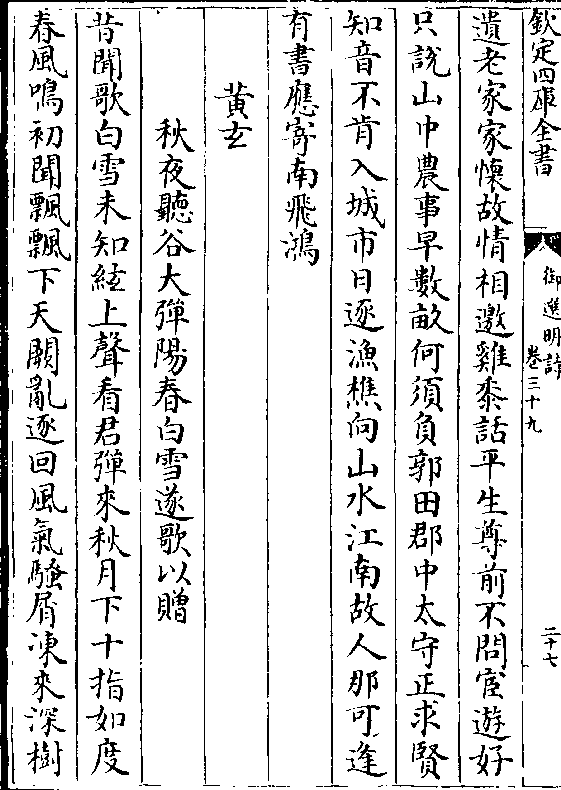 欽定四庫全書
御選明詩
卷三十九
二十七
遺老家家懷故情相邀雞黍話平生尊前不問宦遊好
只説山中農事早數畝何須負郭田郡中太守正求賢
知音不肯入城市日逐漁樵向山水江南故人那可逢
有書應寄南飛鴻
黄玄
秋夜聽谷大彈陽春白雪遂歌以贈
昔聞歌白雪未知絃上聲看君彈來秋月下十指如度
春風鳴初聞飄飄下天闕亂逐回風氣騷屑凍來深樹